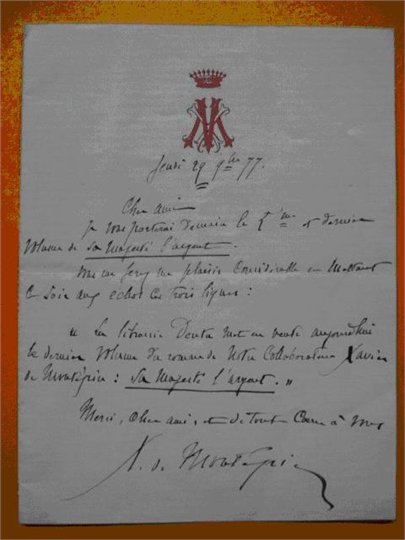 Jeudi 29 9bre 77.
Cher ami
Je vous porterai demain le 5ème et dernier
volume de Sa Majesté l'argent.
Vous me ferez un plaisir considérable en mettant
ce soir aux échos ces trois lignes :
« La librairie Dentu met en vente aujourd'hui
le dernier volume du roman de notre collaborateur Xavier
de Montépin : Sa Majesté l'argent. »
Merci, cher ami, et de tout cœur à vous
X. de Montépin